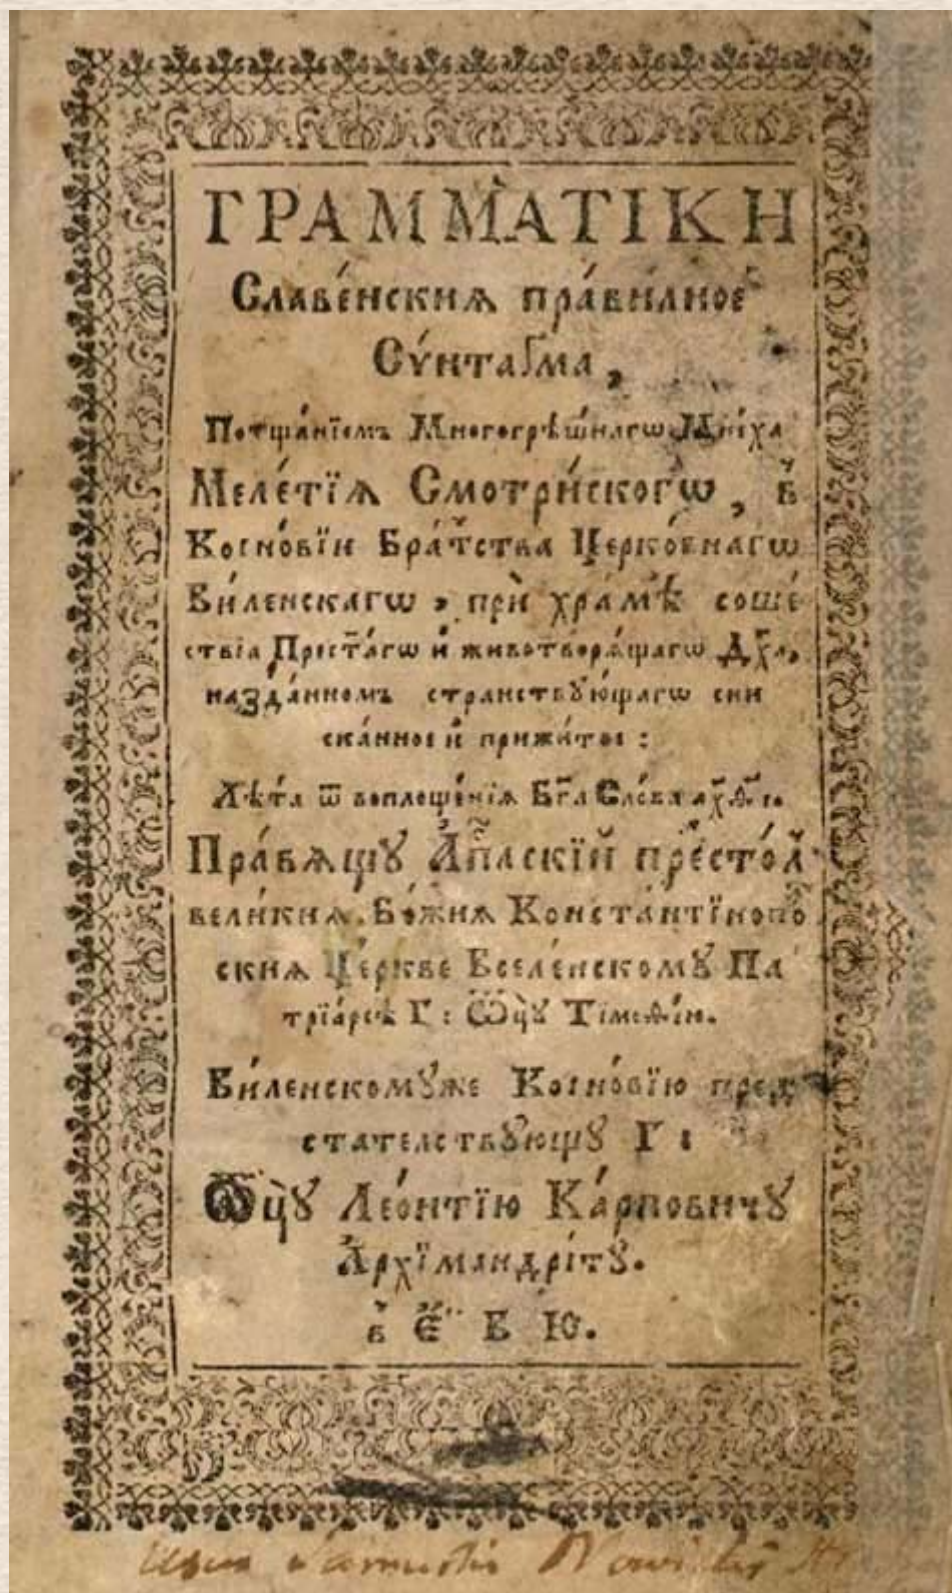 ГРАММА́ТІКИ
Славе́нскиѧ пра́вилное
Сѵ́нтаґма,
Потща́нїемъ Многогрѣ́шнагѡ Мни́ха
Меле́тїѧ Смотри́скогѡ, в̾
Коіно́вїи Бра́тства Церко́внагѡ
Ви́ленскагѡ, прѝ хра́мѣ соше́
ствїа Прест҃а́гѡ и҆ животворѧ́щагѡ Дх҃а,
назда́нномъ стра́нствꙋющагѡ сни
ска́нное и҆ прижи́тое:
Лѣ́та ѿ воплоще́нїѧ Бг҃а Сло́ва ах҃ѳі.
Пра́вѧщꙋ А҆пⷭ҇лскїй прⷭ҇то́лъ
вели́киѧ Бо́жїѧ Конста́нтїнопо
скиѧ Це́ркве Вселе́нскомꙋ Па
трїа́рсѣ Г: Ѿцꙋ̀ Тїмоѳе́ю.
Ви́ленскомꙋже Коіно́вїю пред
стателствꙋющꙋ Г:
Ѿцꙋ̀ Лео́нтїю Ка́рповичꙋ
А҆рхїмандрі́тꙋ.
в̾ Е҆ В Ю.